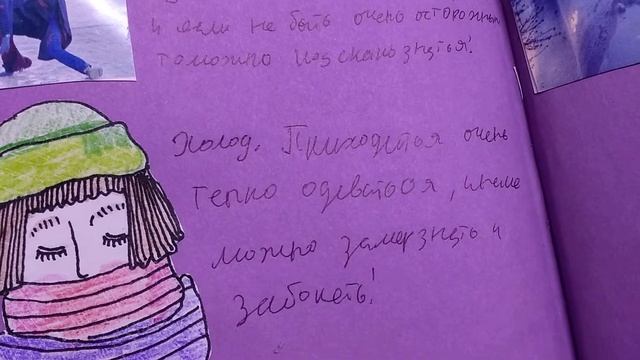 и если не быть очень осторожным
то можно поскользнуться!
Холод. Приходиться очень
тепло одеваться, иначе
можно замёрзнуть и
заболеть!